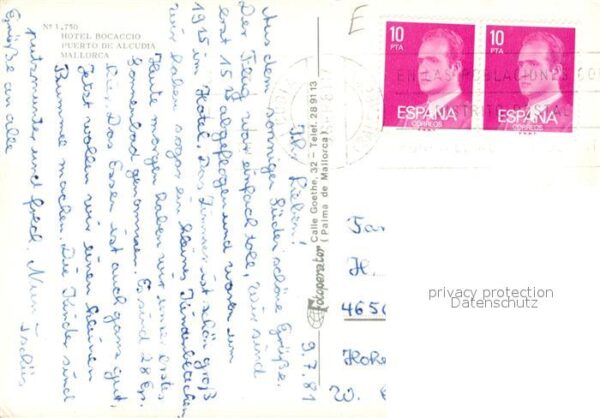 Nº 1.750
HOTEL BOCACCIO
PUERTO DE ALCUDIA
MALLORCA
9.7.81
Ihr Lieben!
Aus dem sonnigen Süden schöne Grüße.
Der Flug war einfach toll, wir sind
erst 15 abgeflogen und waren um
19 15 im Hotel. Das Zimmer ist schön groß
wir haben sogar ein kleines Kinderbettchen
Heute morgen haben wir unser erstes
Sonnenbad genommen. Es sind 28 Gr.
hier. Das Essen ist auch ganz gut,
Jetzt wollen wir einen kleinen
Bummel machen. Die Kinder sind
putzmunter und frech. Nun Tschüs
Grüße an alle
Fotoperator Calle Goethe, 32 – Telef. 28 91 13
(Palma de Mallorca)
E
10
PTA
ESPAÑA
CORREOS
10
PTA
ESPAÑA
CORREOS
EN LAS POBLACIONES CON
DISTRITO POSTAL
Fam
H.
4650
Hohe
W.
privacy protection
Datenschutz